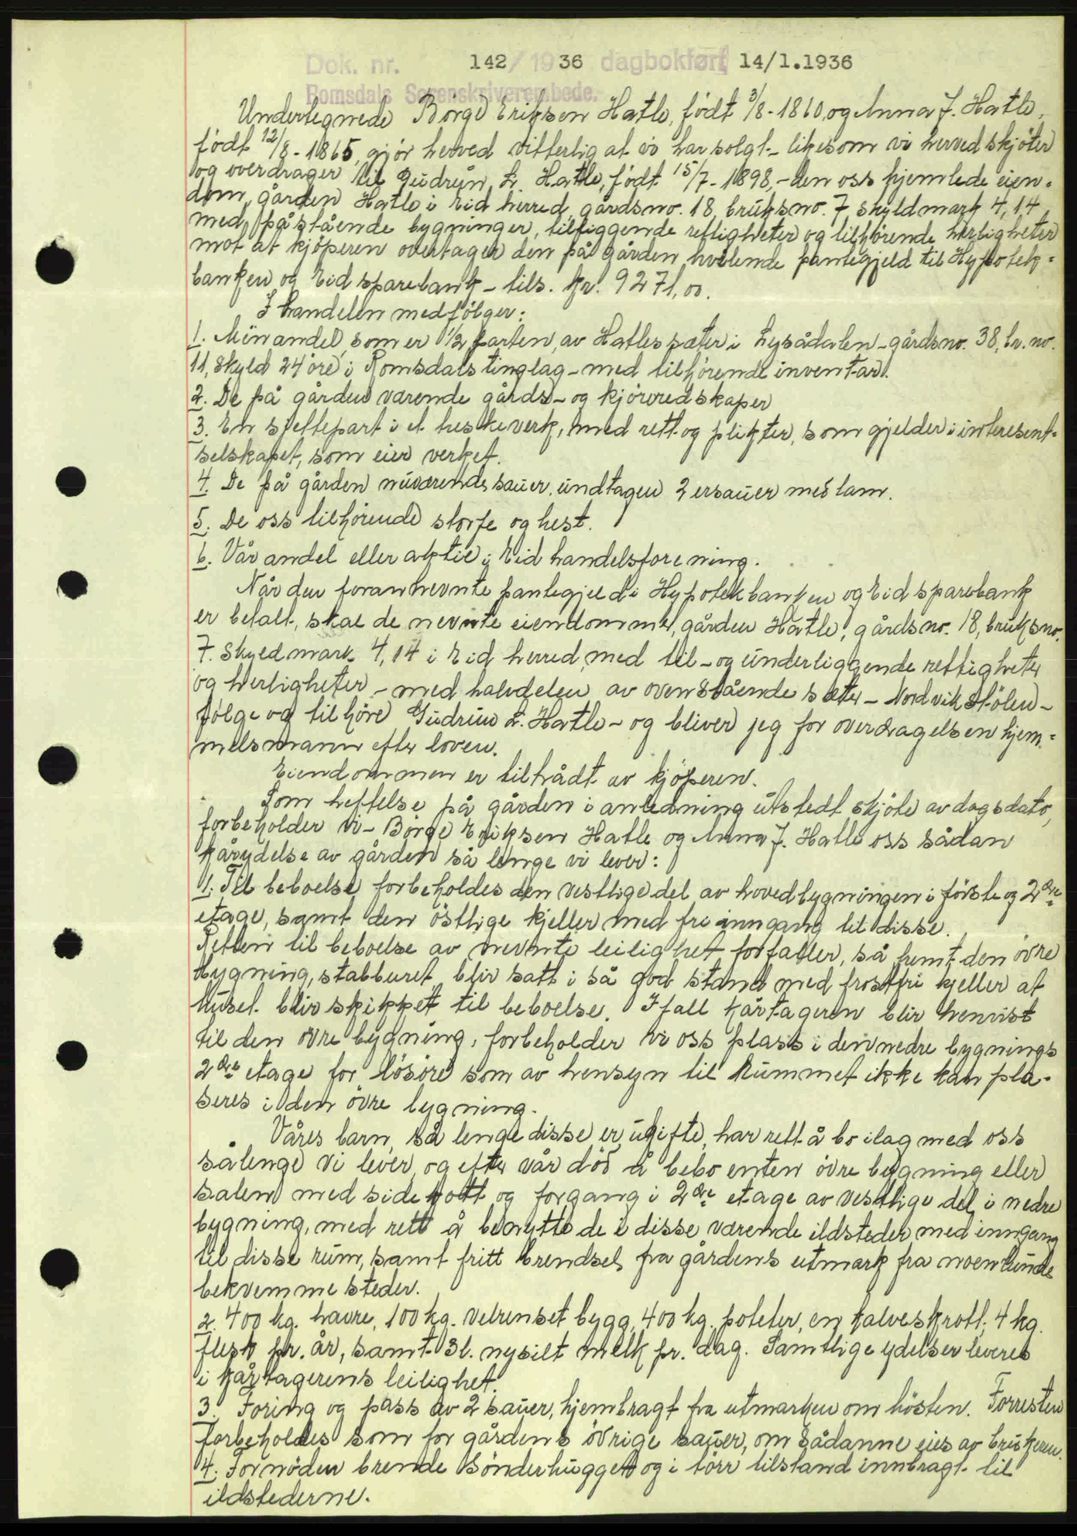 Dok. nr. 142/1936 dagbokført 14/1.1936
Romsdals Sorenskriverembede.
Undertegnede Börge Eriksen Hatle, födt 3/8-1860, og Anna J. Hatle,
födt 12/8-1865, gjör herved vitterlig at vi har solgt - likesom vi herved skjöter
og overdrager til Gudrun L. Hatle, födt 15/7-1898, - den oss hjemlede eien-
dom, gården Hatle i Eid herred, gårdsno. 18, bruksno. 7 skyldmark 4,14
med påstående bygninger, tilliggende rettigheter og tilhørende herligheter
mot at kjöperen overtager den på gården hvilende pantegjeld til Hypotek-
banken og Eid sparebank - tils. kr. 9271,00.
I handelen medfölger:
1. Min andel, som er 1/2 parten, av Hatlesæter i Lysådalen - gårdsno. 38, br. no.
11, skyld 24 öre, i Romsdals tinglag - med tilhörende inventar.
2. De på gården værende gårds- og kjöreredskaper
3. En sjettepart i et heskeverk, med rett og plikter, som gjelder i interesent-
selskapet, som eier verket.
4. De på gården nuværende sauer, undtagen 2 ersauer med lam.
5. De oss tilhörende storfe og hest.
6. Vår andel eller aktie i Eid handelsforening.
Når den forannevnte pantegjeld i Hypotekbanken og Eid sparebank
er betalt, skal de nevnte eiendomme, gården Hatle, gårdsno. 18, bruksno.
7. Skyldmark 4,14 i Eid herred, med til- og underliggende rettigheter
og herligheter - med halvdelen av ovenstående sæter - Nordvikstölen -
fölge og tilhöre Gudrun L. Hatle - og bliver jeg for overdragelsen hjem-
melsmann efter loven.
Eiendommen er tiltrådt av kjöperen.
Som heftelse på gården i anledning utstedt skjöte av dagsdato,
forbeholder vi - Börge Eriksen Hatle og Anna J. Hatle oss sådan
kårydelse av gården så lenge vi lever:
1. Til beboelse forbeholdes den vestlige del av hovedbygningen i förste og 2dre
etage, samt den östlige kjeller med fri inngang til disse.
Retten til beboelse av nevnte leilighet forfaller, så fremt den övre
bygning, stabburet blir satt i så god stand med frostfri kjeller at
huset blir skikket til beboelse. Ifall kårtageren blir henvist
til den övre bygning, forbeholder vi oss plass i den nedre bygnings
2dre etage for lösöre som av hensyn til rummet ikke kan pla-
seres i den övre bygning.
Våres barn, så lenge disse er ugifte, har rett å bo ilag med oss
sålenge vi lever, og efter vår död å bebo enten övre bygning eller
salen med sidekott og forgang i 2dre etage av vestlige del i nedre
bygning, med rett å benytte de i disse værende ildsteder med inngang
til disse rum, samt fritt brendsel fra gårdens utmark fra noenlunde
bekvemme steder.
2. 400 kg. havre, 100 kg. velrenset bygg, 400 kg. poteter, en kalveskrott, 4 kg.
flesk pr. år, samt 3 l. nysilt melk pr. dag. Samtlige ydelser leveres
i kårtagerens leilighet.
3. Foring og pass av 2 sauer, hjembragt fra utmarken om hösten. Forresten
forbeholdes som for gårdens övrige sauer, om sådanne eies av brukeren.
4. Fornöden brende sönderhugget og i törr tilstand innbragt til
ildstederne.